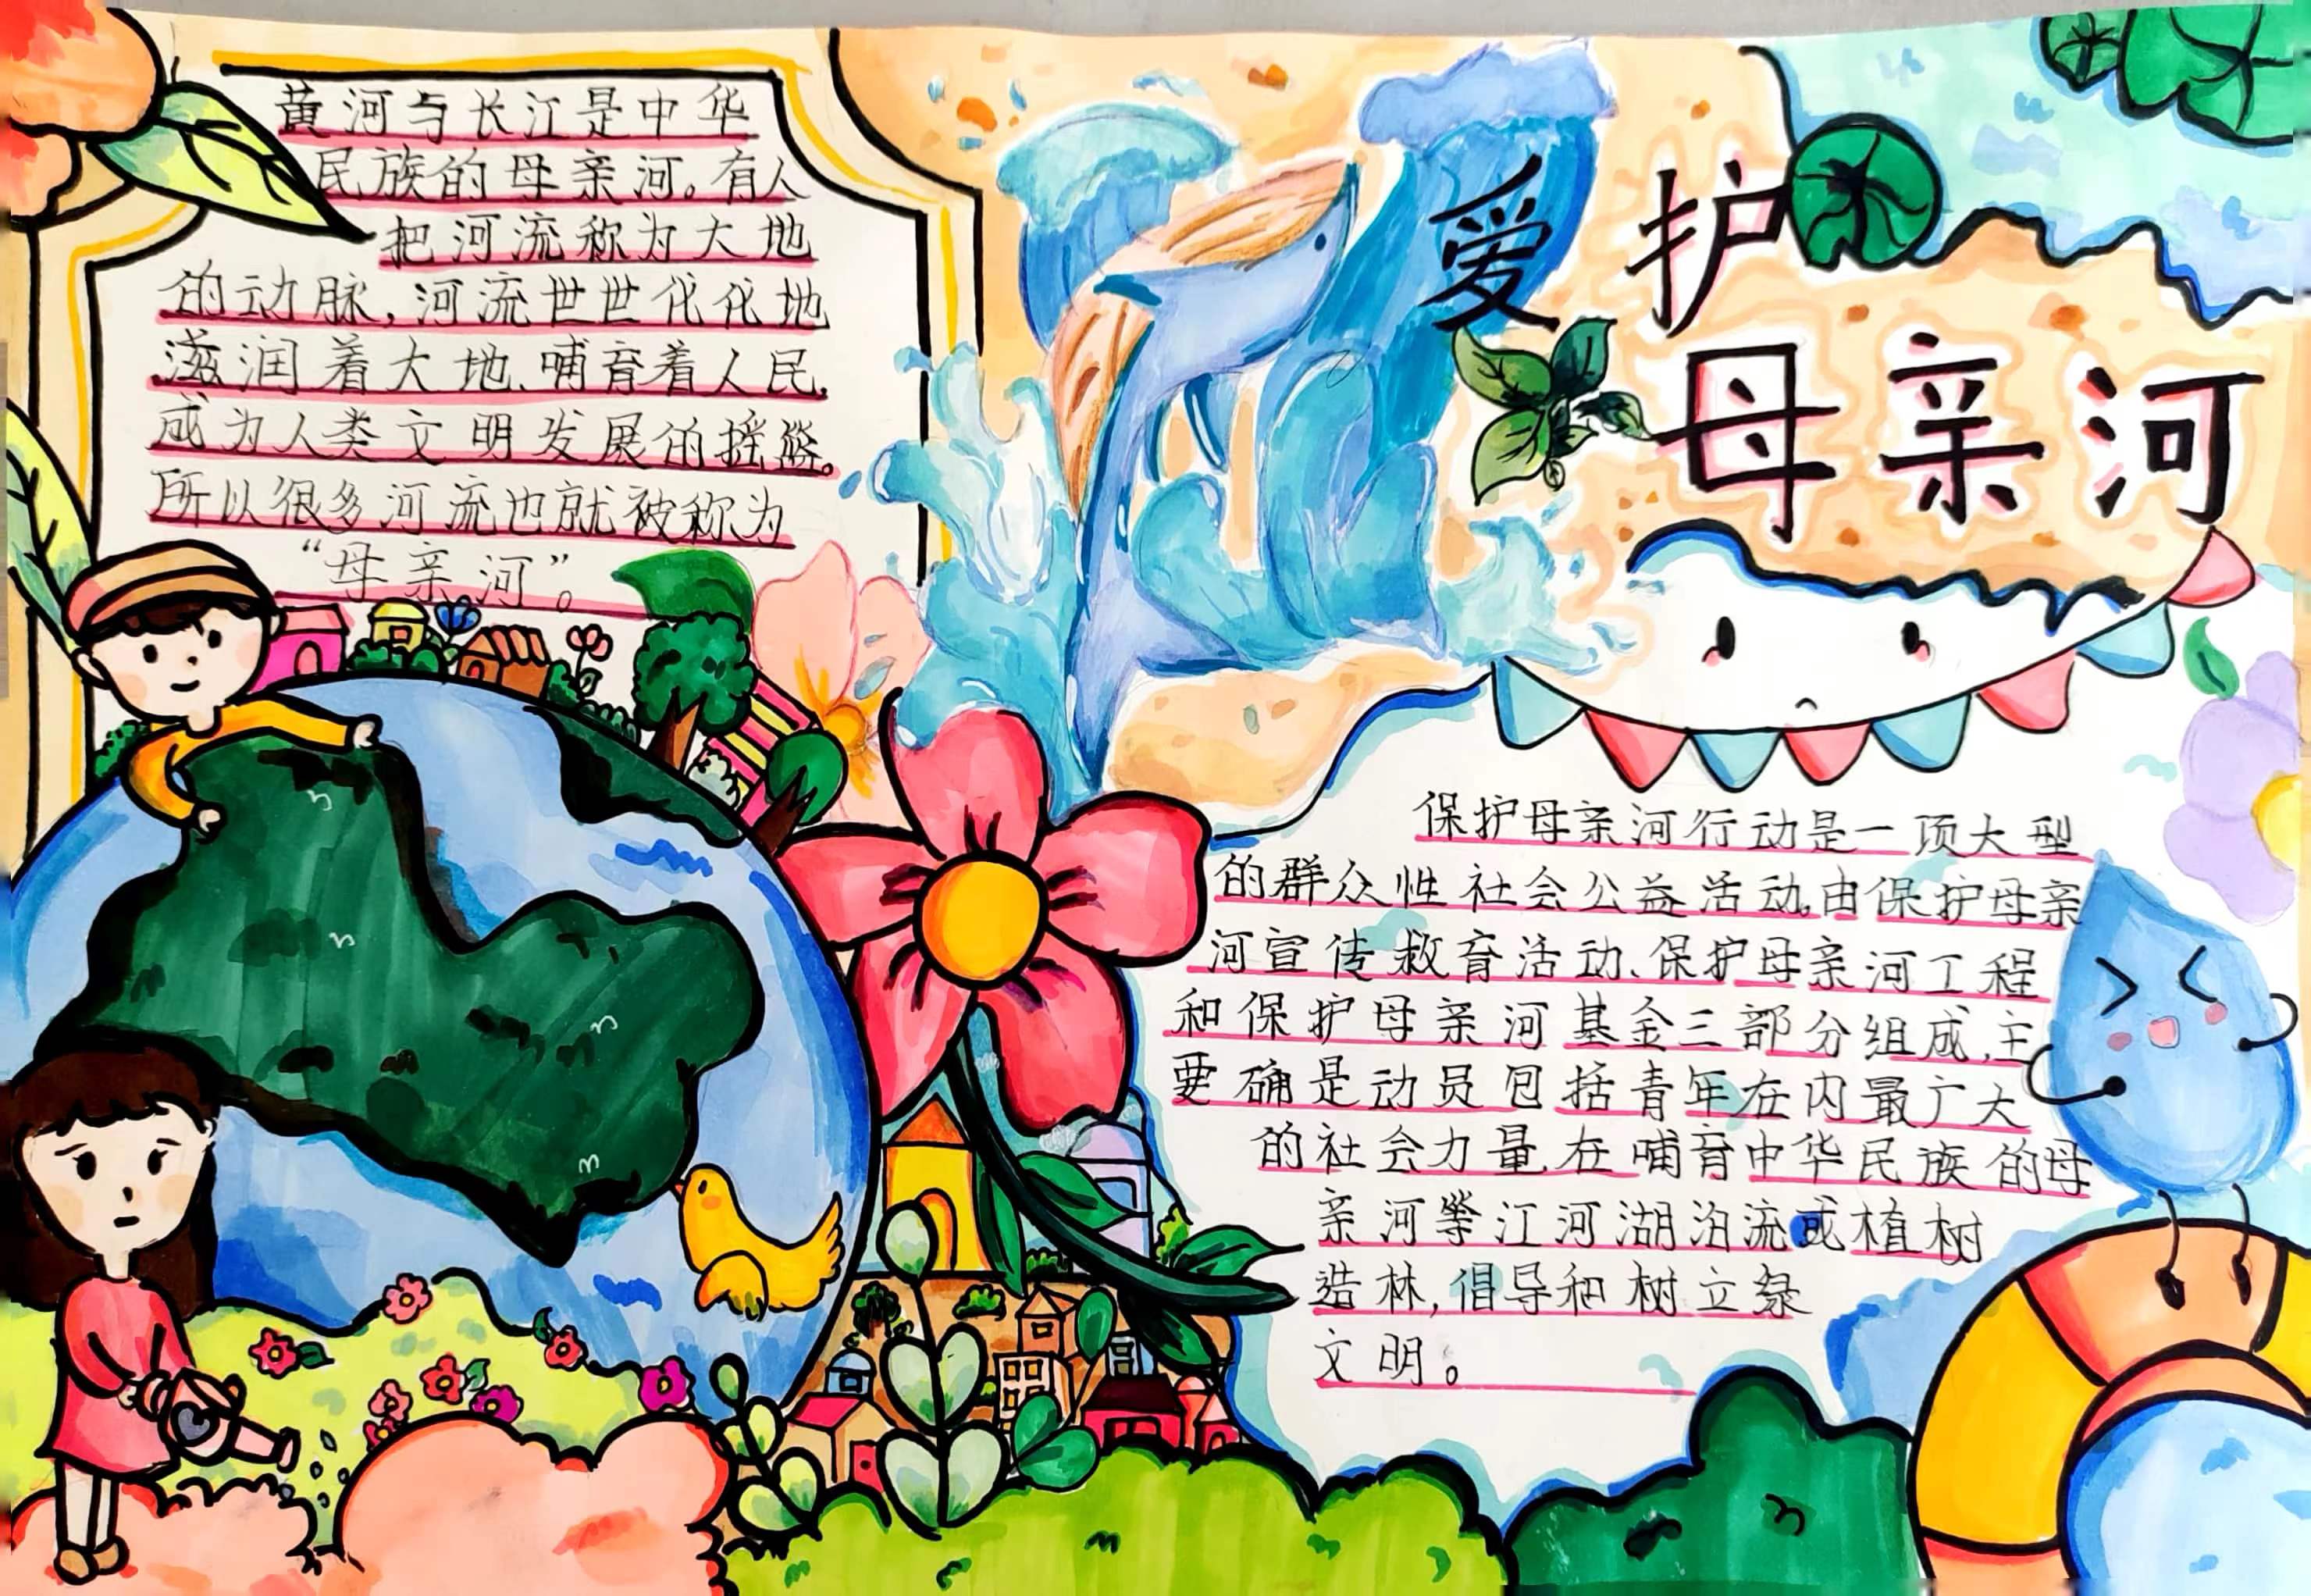 爱护
母亲河
黄河与长江是中华
民族的母亲河。有人
把河流称为大地
的动脉,河流世世化化地
滋润着大地、哺育着人民,
成为人类文明发展的摇篮。
所以很多河流也就被称为
“母亲河”。
保护母亲河行动是一项大型
的群众性社会公益活动,由保护母亲
河宣传教育活动、保护母亲河工程
和保护母亲河基金三部分组成,主
要确是动员包括青年在内最广大
的社会力量在哺育中华民族的母
亲河等江河湖泊流或植树
造林,倡导和树立绿
文明。